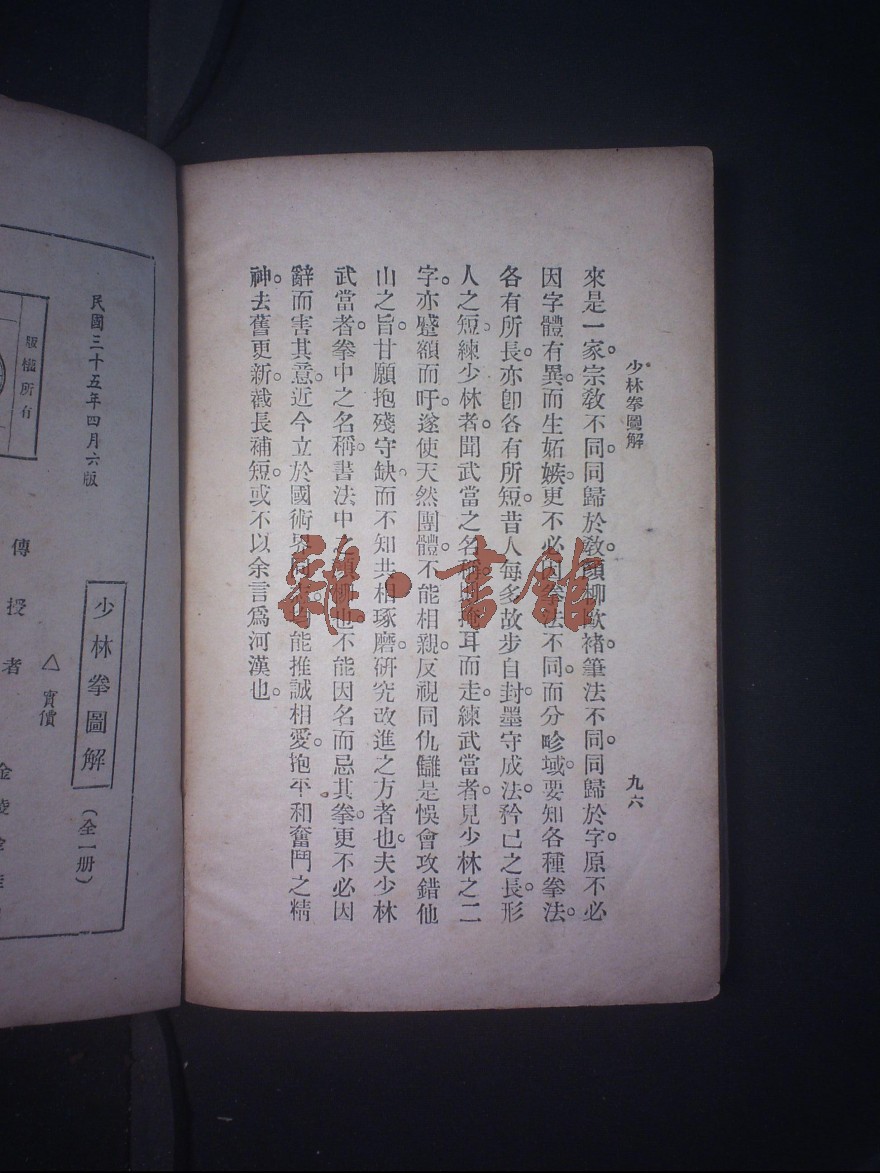 少林拳圖解
九六
來是一家。宗教不同。同歸於教。顏柳歐褚。筆法不同。同歸於字。原不必
因字體有異。而生妬嫉。更不必因拳法不同。而分畛域。要知各種拳法。
各有所長。亦卽各有所短。昔人每多故步自封。墨守成法。矜己之長。形
人之短。練少林者。聞武當之名稱。掩耳而走。練武當者。見少林之二
字。亦蹙額而吁。遂使天然團體。不能相親。反視同仇讎。是悞會攻錯他
山之旨。甘願抱殘守缺。而不知共相琢磨。研究改進之方者也。夫少林
武當者。拳中之名稱。書法中之顏柳也。不能因名而忌其拳。更不必因
辭而害其意。近今立於國術界
能推誠相愛。抱平和奮鬥之精
神。去舊更新。截長補短。或不以余言爲河漢也。
雜·書館
版權所有
民國三十五年四月六版
少林拳圖解
(全一册)
△實價
傳授者
金